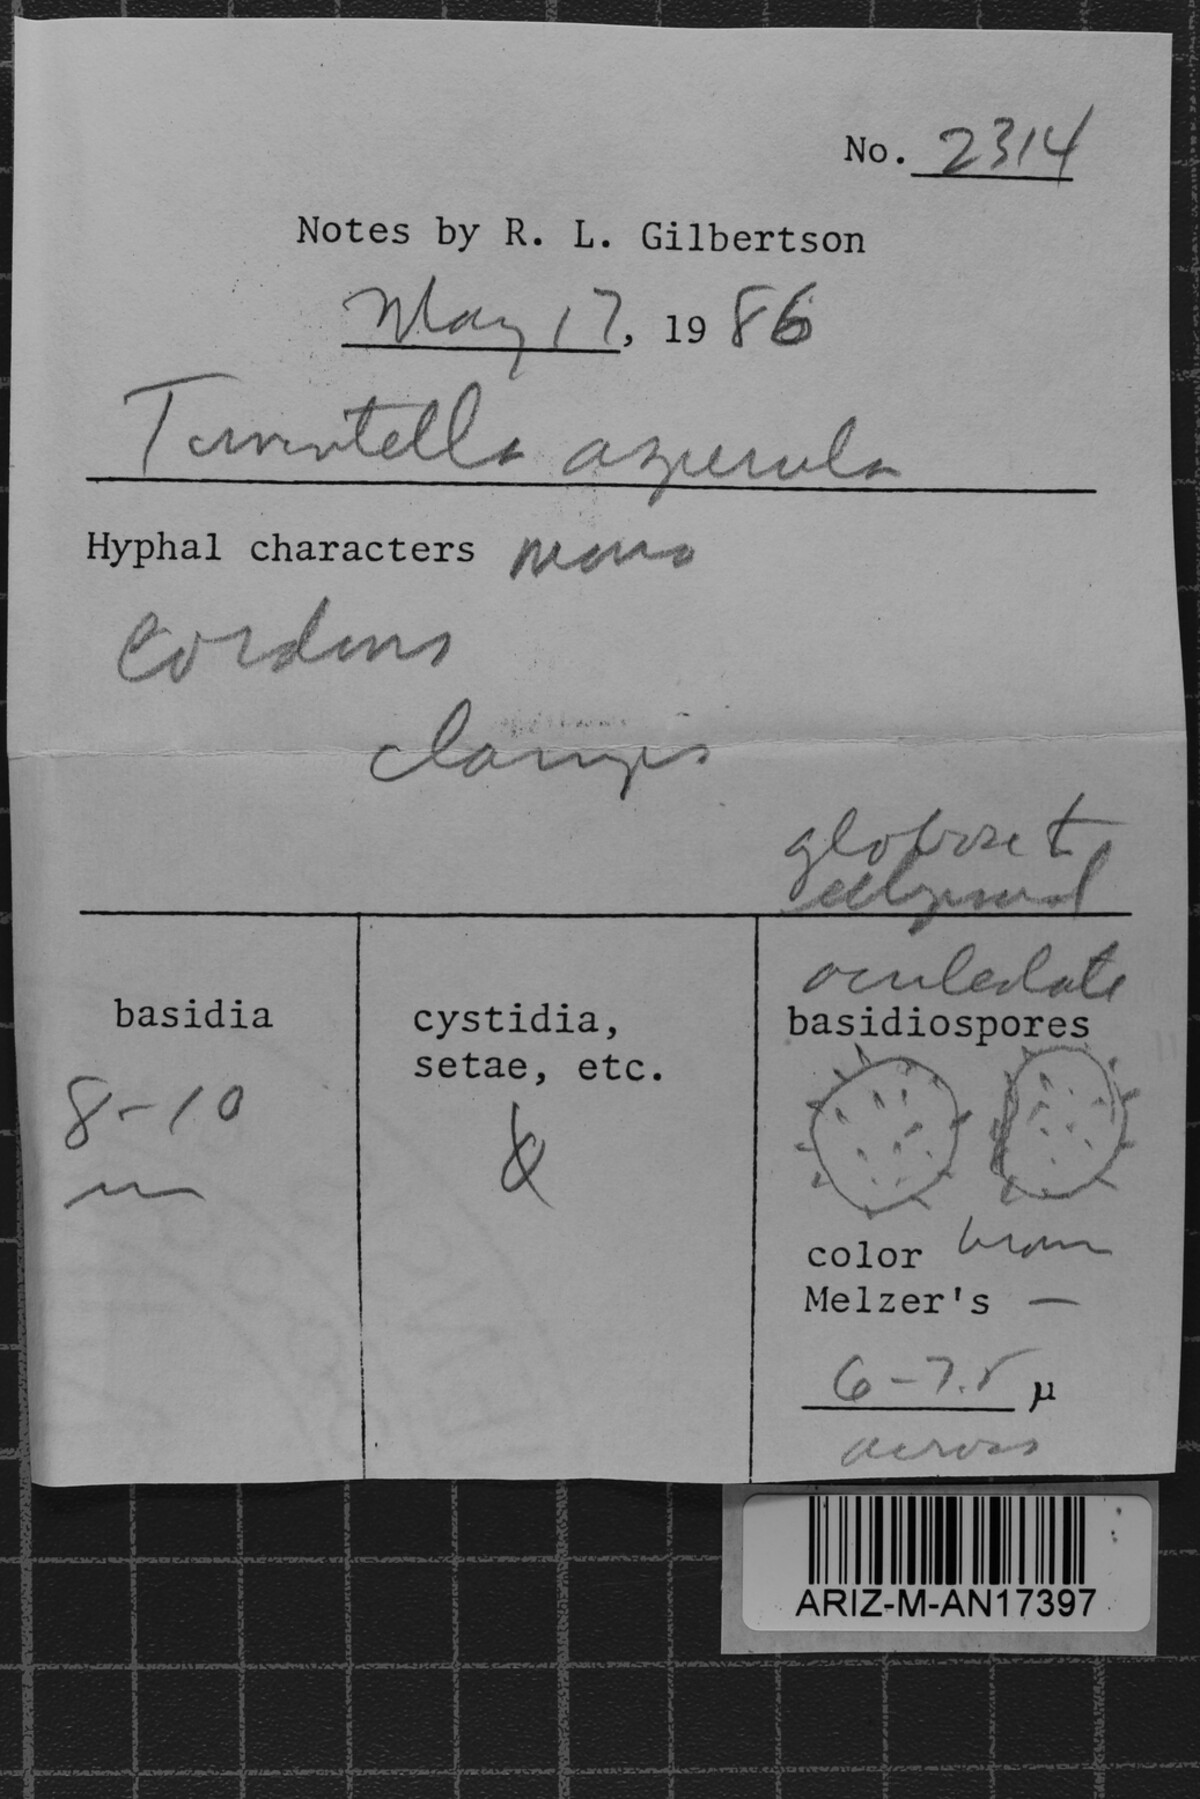 No. 2314
Notes by R. L. Gilbertson
May 17, 1986
Tomentella asperula
Hyphal characters mono
cordons
clamps
globose to
ellipsoid
aculeolate
basidia
cystidia,
setae, etc.
basidiospores
8-10
color brown
Melzer's —
6-7.5 µ
across
ARIZ-M-AN17397